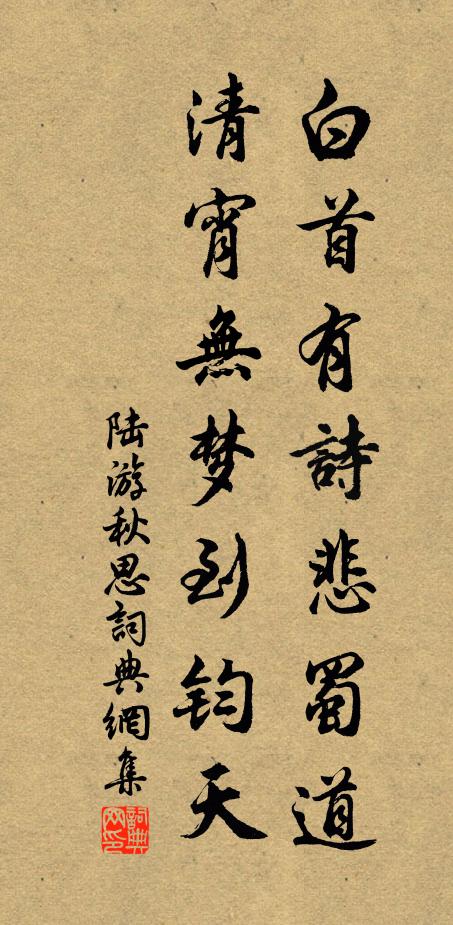 白首有詩悲蜀道
清宵無梦到钧天
陆游秋思詞典網集
詞典网印